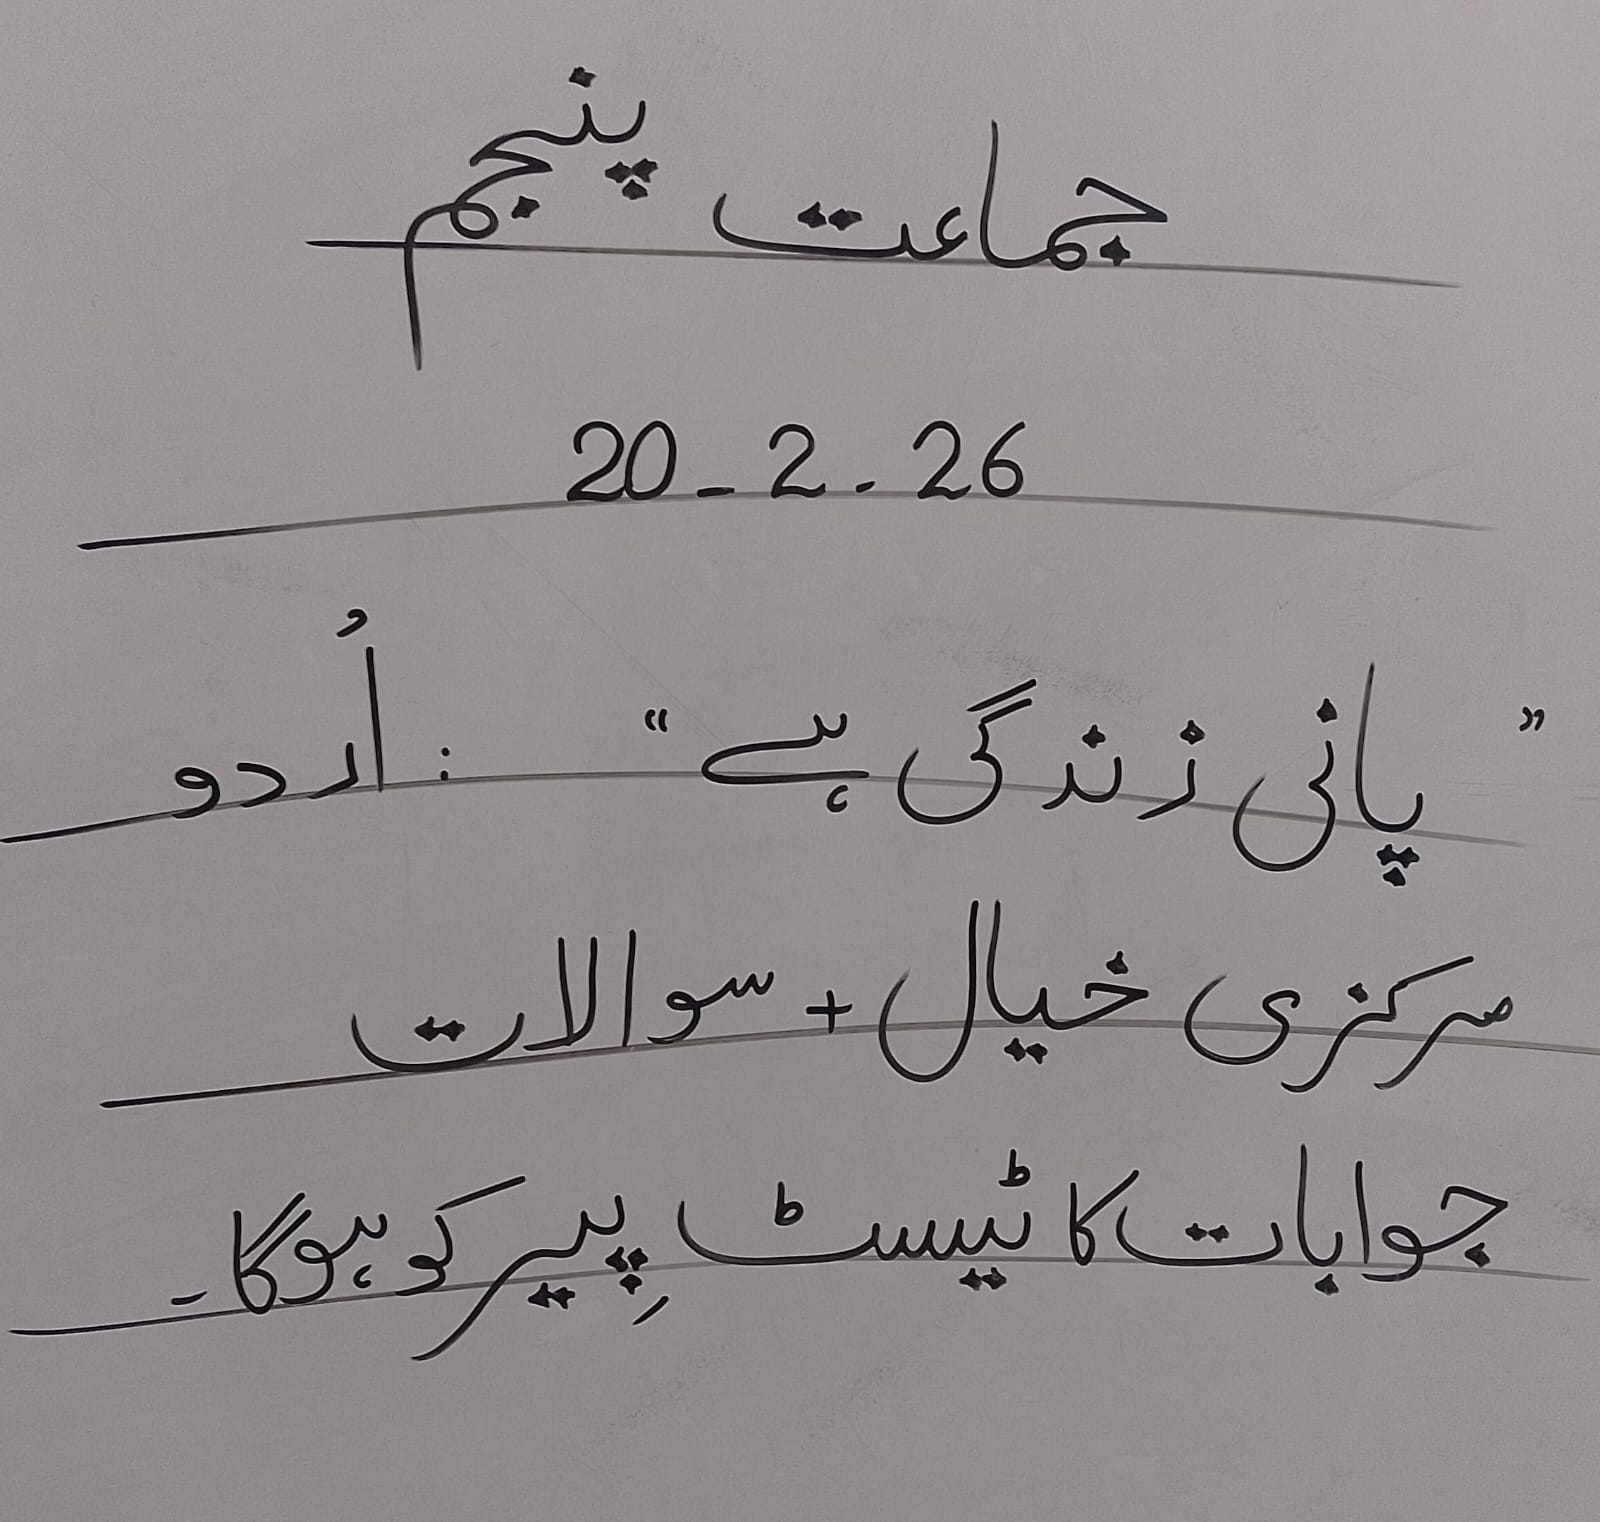 جماعت پنجم
20-2-26
"پانی زندگی ہے" : اُردو
مرکزی خیال + سوالات
جوابات کا ٹیسٹ پِیر کو ہوگا۔